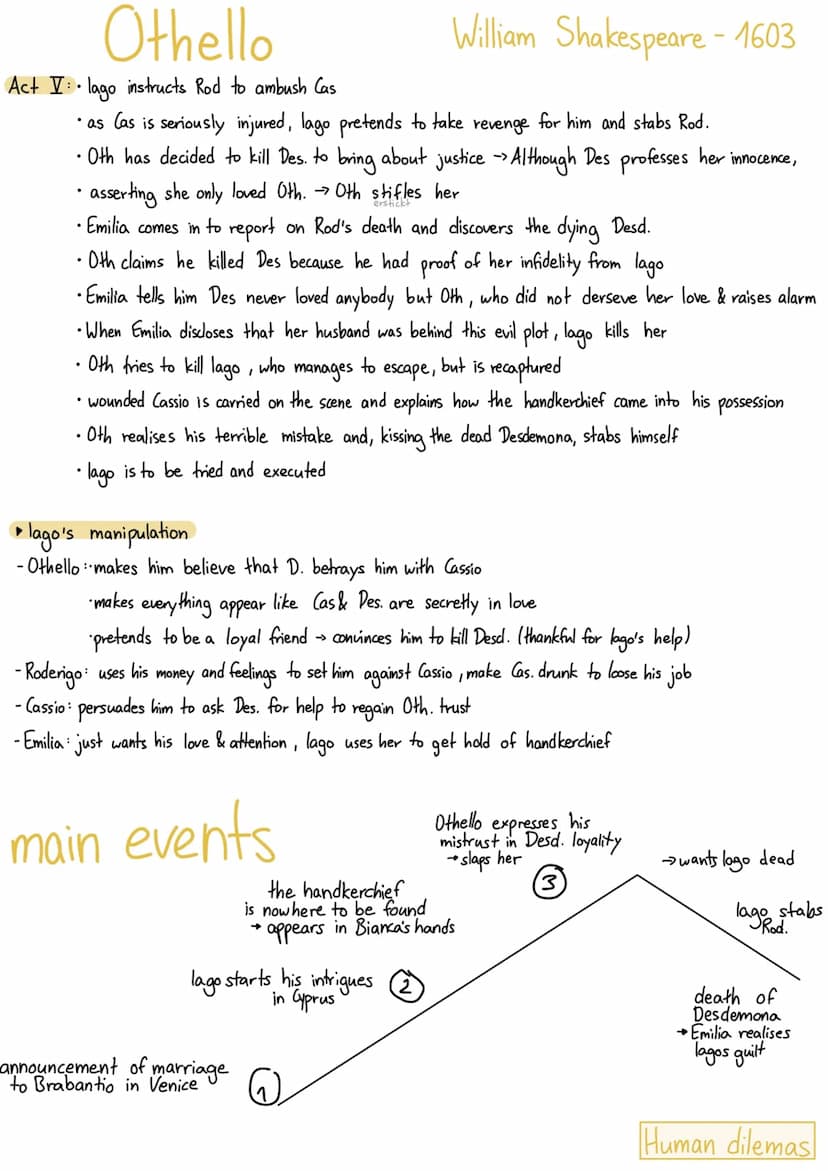 Othello
William Shakespeare - 1603
Act V: • Iago instructs Rod to ambush Cas
• as Cas is seriously injured, Iago pretends to take revenge for him and stabs Rod.
• Oth has decided to kill Des. to bring about justice → Although Des professes her innocence,
• asserting she only loved Oth. → Oth stifles her
erstickt
• Emilia comes in to report on Rod's death and discovers the dying Desd.
• Oth claims he killed Des because he had proof of her infidelity from Iago
• Emilia tells him Des never loved anybody but Oth, who did not derseve her love & raises alarm
• When Emilia discloses that her husband was behind this evil plot, Iago kills her
• Oth tries to kill Iago, who manages to escape, but is recaptured
• wounded Cassio is carried on the scene and explains how the handkerchief came into his possession
• Oth realises his terrible mistake and, kissing the dead Desdemona, stabs himself
• Iago is to be tried and executed
▸ Iago's manipulation
- Othello: • makes him believe that D. betrays him with Cassio
• makes everything appear like Cas & Des. are secretly in love
• pretends to be a loyal friend → convinces him to kill Desd. (thankful for Iago's help)
- Roderigo: uses his money and feelings to set him against Cassio, make Cas. drunk to loose his job
- Cassio: persuades him to ask Des. for help to regain Oth. trust
- Emilia: just wants his love & attention, Iago uses her to get hold of handkerchief
main events
Othello expresses his
mistrust in Desd. loyality
→ slaps her
3
→ wants Iago dead
the handkerchief
is nowhere to be found
→ appears in Bianca's hands
Iago stabs
Rod.
Iago starts his intrigues
in Cyprus
2
death of
Desdemona
→ Emilia realises
Iagos guilt
announcement of marriage
to Brabantio in Venice
1
Human dilemas